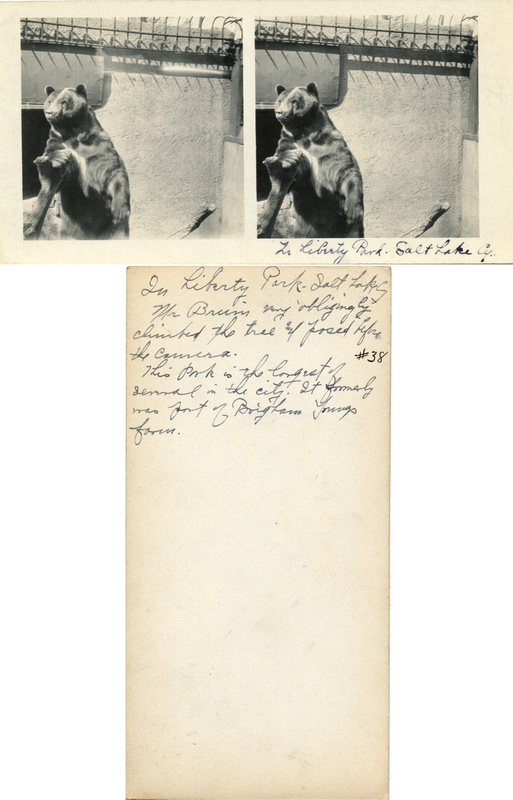 In Liberty Park. Salt Lake Cy.
In Liberty Park - Salt Lake Cy
Mr Bruin very obligingly
climbed the tree & posed before
the camera.
#38
This Park is the largest of
several in the city. It formerly
was part of Brigham Youngs
farm.